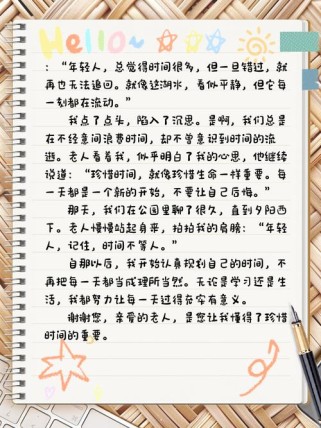 Hello~
：“年轻人，总觉得时间很多，但一旦错过，就
再也无法追回。就像这湖水，看似平静，但它每
一刻都在流动。”
我点了点头，陷入了沉思。是啊，我们总是
在不经意间浪费时间，却不曾意识到时间的流
逝。老人看着我，似乎明白了我的心思，他继续
说道：“珍惜时间，就像珍惜生命一样重要。每
一天都是一个新的开始，不要让自己后悔。”
那天，我们在公园里聊了很久，直到夕阳西
下。老人慢慢站起身来，拍拍我的肩膀：“年轻
人，记住，时间不等人。”
自那以后，我开始认真规划自己的时间，不
再把每一天都当成理所当然。无论是学习还是生
活，我都努力让每一天过得充实有意义。
谢谢您，亲爱的老人，是您让我懂得了珍惜
时间的重要。